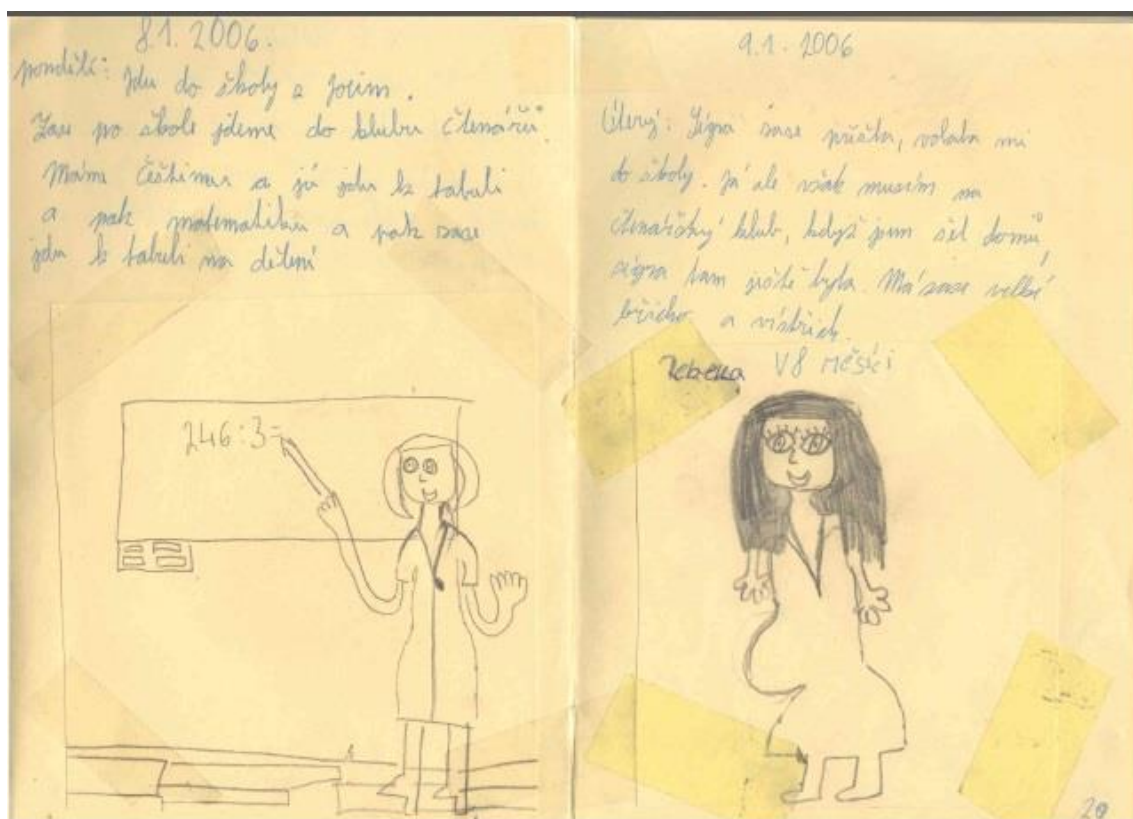 8.1.2006.
pondělí: Jdu do školy s Jocim.
Zase po škole jdeme do klubu čtenářů.
Máme Češtinu a já jdu k tabuli
a pak matematiku a pak zase
jdu k tabuli na dělení
246:3=
9.1.2006
Úterý: Ségra zase přišla, volala mi
do školy. Já ale však musím na
čtenářský klub, když jsem šel domů,
ségra tam ještě byla. Má zase velké
břicho a
Rebeka V8 měsíci
20